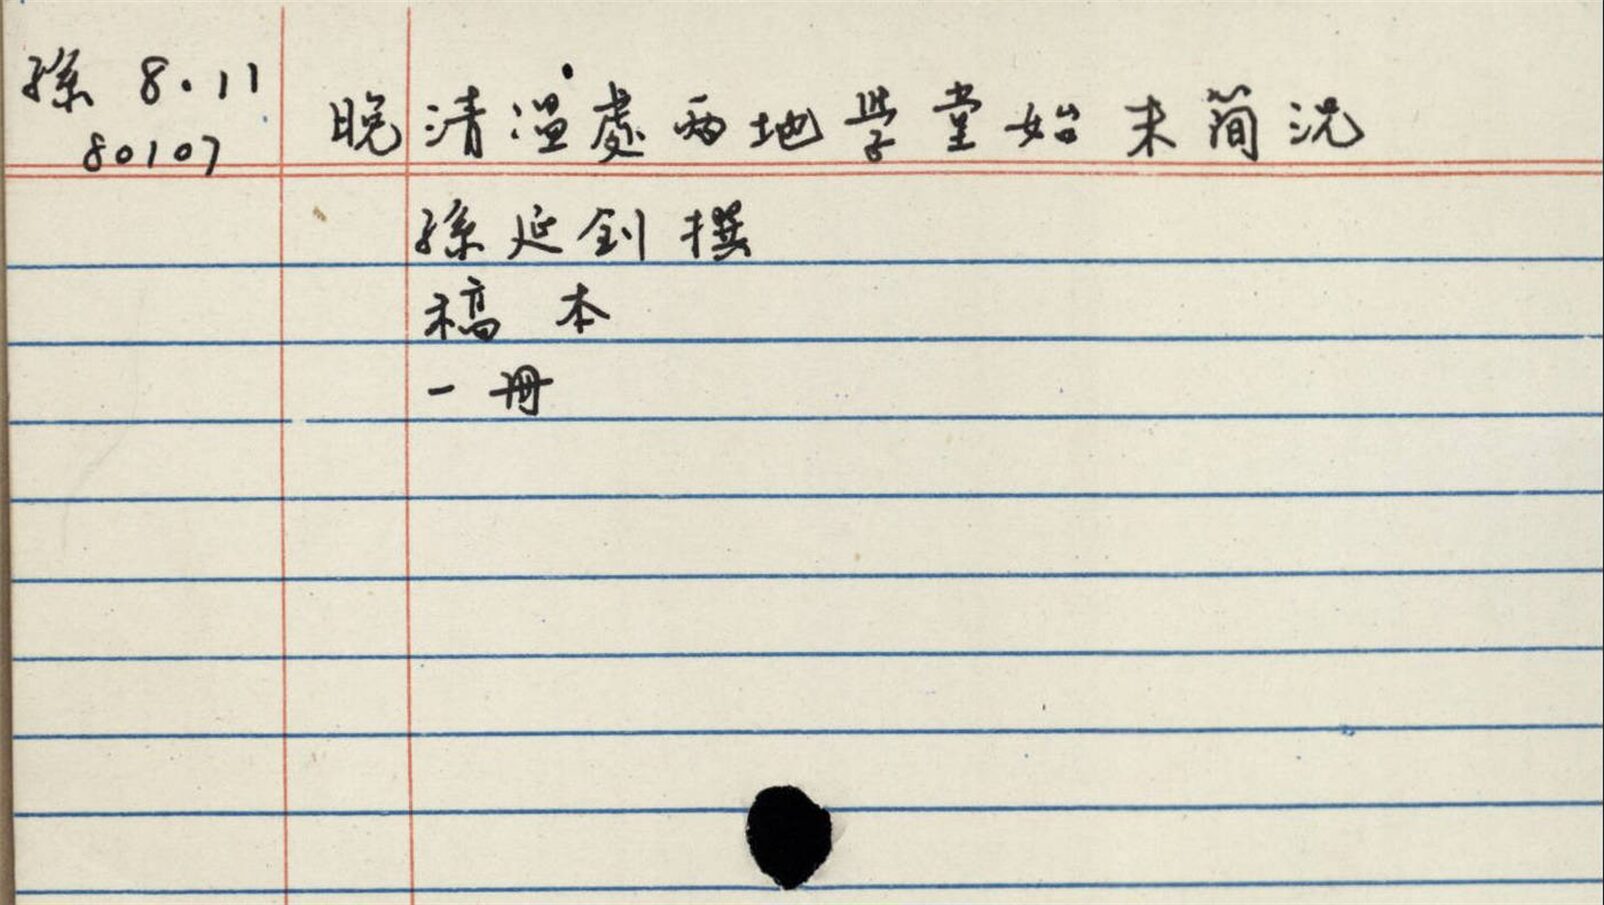 孫 8.11
80107
晚清溫處两地学堂始末简况
孫延釗撰
稿本
一冊